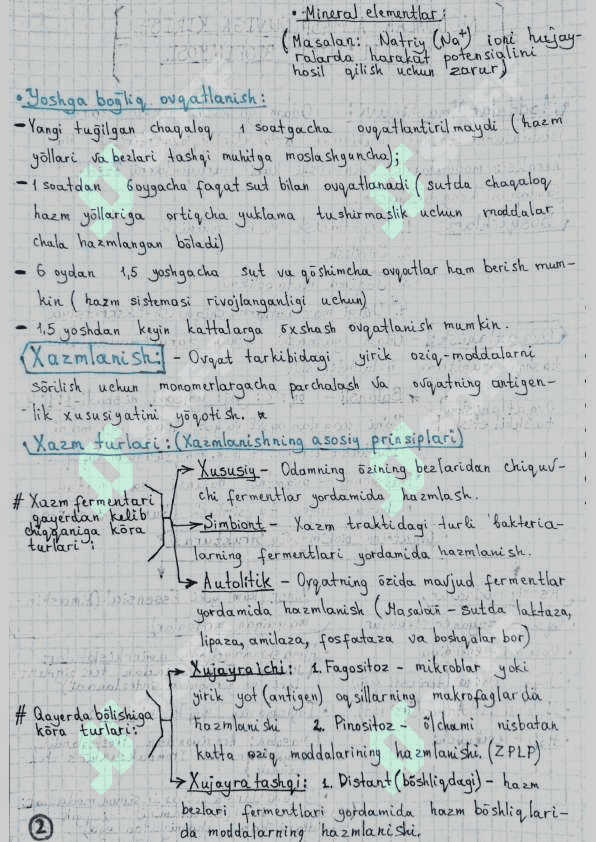 • Mineral elementlar:
(Masalan: Natriy (Na⁺) ioni hujay-
ralarda harakat potensiglini
hosil qilish uchun zarur)
• Yoshga boḡliq ovqatlanish:
- Yangi tuḡilgan chaqaloq 1 soatgacha ovqatlantirilmaydi (hazm
yōllari va bezlari tashqi muhitga moslashguncha);
- 1 soatdan 6oygacha faqat sut bilan ovqatlanadi (sutda chaqaloq
hazm yōllariga ortiqcha yuklama tushirmaslik uchun moddalar
chala hazmlangan bōladi)
- 6 oydan 1,5 yoshgacha sut va qōshimcha ovqatlar ham berish mum-
kin (hazm sistemasi rivojlanganligi uchun)
- 1,5 yoshdan keyin kattalarga ōxshash ovqatlanish mumkin.
Xazmlanish: - Ovqat tarkibidagi yirik oziq-moddalarni
sōrilish uchun monomerlargacha parchalash va ovqatning antigen-
lik xususiyatini yōqotish.
• Xazm turlari: (Xazmlanishning asosiy prinsiplari)
# Xazm fermentari
qayerdan kelib
chiqqaniga kōra
turlari:
Xususiy - Odamning ōzining bezlaridan chiquv-
chi fermentlar yordamida hazmlash.
Simbiont - Xazm traktidagi turli bakteria-
larning fermentlari yordamida hazmlanish.
Autolitik - Ovqatning ōzida mavjud fermentlar
yordamida hazmlanish (Masalan - sutda laktaza,
lipaza, amilaza, fosfataza va boshqalar bor)
# Qayerda bōlishiga
kōra turlari:
Xujayraichi: 1. Fagositoz - mikroblar yoki
yirik yot (antigen) oqsillarning makrofaglarda
hazmlanishi 2. Pinositoz - ōlchami nisbatan
katta oziq moddalarining hazmlanishi. (ZPLP)
Xujayratashqi: 1. Distant (bōshliqdagi) - hazm
bezlari fermentlari yordamida hazm bōshliqlari-
da moddalarning hazmlanishi.
2